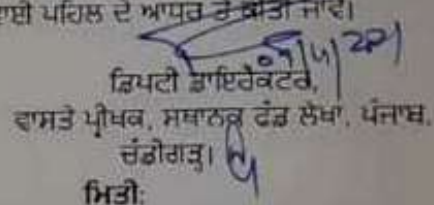 ਪਹਿਲ ਦੇ ਆਧਾਰ ਤੇ ਕੀਤੀ ਜਾਵੇ।
ਡਿਪਟੀ ਡਾਇਰੈਕਟਰ,
ਵਾਸਤੇ ਪ੍ਰੀਖਕ, ਸਥਾਨਕ ਫੰਡ ਲੇਖਾ, ਪੰਜਾਬ,
ਚੰਡੀਗੜ੍ਹ।
ਮਿਤੀ: